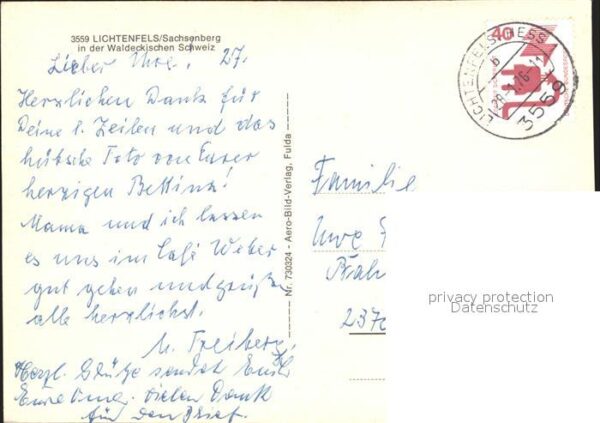 3559 LICHTENFELS/Sachsenberg
in der Waldeckischen Schweiz
Lieber Uwe! 27.
Herzlichen Dank für
Deine l. Zeilen und das
hübsche Foto von Eurer
herzigen Bettina!
Mama und ich lassen
es uns im Café Weber
gut gehen und grüßen
alle herzlichst.
Herzl. Grüße sendet Euch
Eure Oma. Vielen Dank
für den Brief.
Nr. 730324 - Aero-Bild-Verlag, Fulda
40
LICHTENFELS, HESS
b
3559
Familie
Uwe
237
privacy protection
Datenschutz